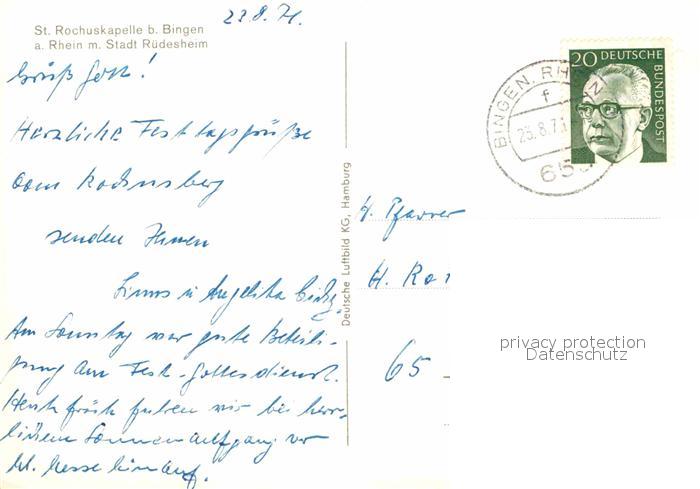 St. Rochuskapelle b. Bingen
a. Rhein m. Stadt Rüdesheim
23.8.71.
Grüß Gott!
Herzliche Festtagsgrüße
vom Rochusberg
senden Ihnen
u. Angelika
Am Sonntag war gute Beteili-
gung am Fest-Gottesdienst.
Heute früh fuhren wir bei herr-
lichem Sonnenaufgang vor
hl. Messe hinauf.
Deutsche Luftbild KG, Hamburg
H. Pfarrer
H.
65
20 DEUTSCHE
BUNDESPOST
BINGEN, RHEIN
f
23.8.71
privacy protection
Datenschutz